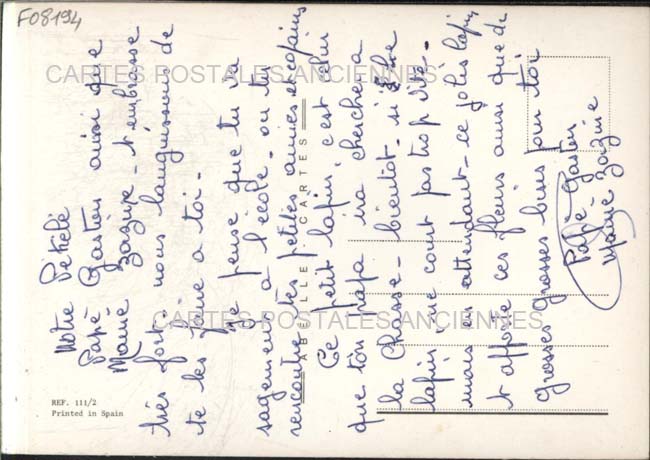 F08194
Notre Pékélé
Papé Gaston ainsi que
Mamé Zozine - t'embrasse
très fort. nous languissons de
te les faire a toi -
Je pense que tu va
sagement a l'école - ou tu
rencontre tes petites amies et copains
Ce petit lapin, c'est celui
que ton papa ira chercher a
la chasse - bientôt - si le
lapin ne court pas trop vite -
mais en attendant - ce joli lapin
t'apporte ces fleurs ainsi que de
grosses grosses bises pour toi
Papé Gaston
Mamé Zozine
ABEILLE - CARTES
REF. 111/2
Printed in Spain
CARTES POSTALES ANCIENNES
CARTES POSTALES ANCIENNES